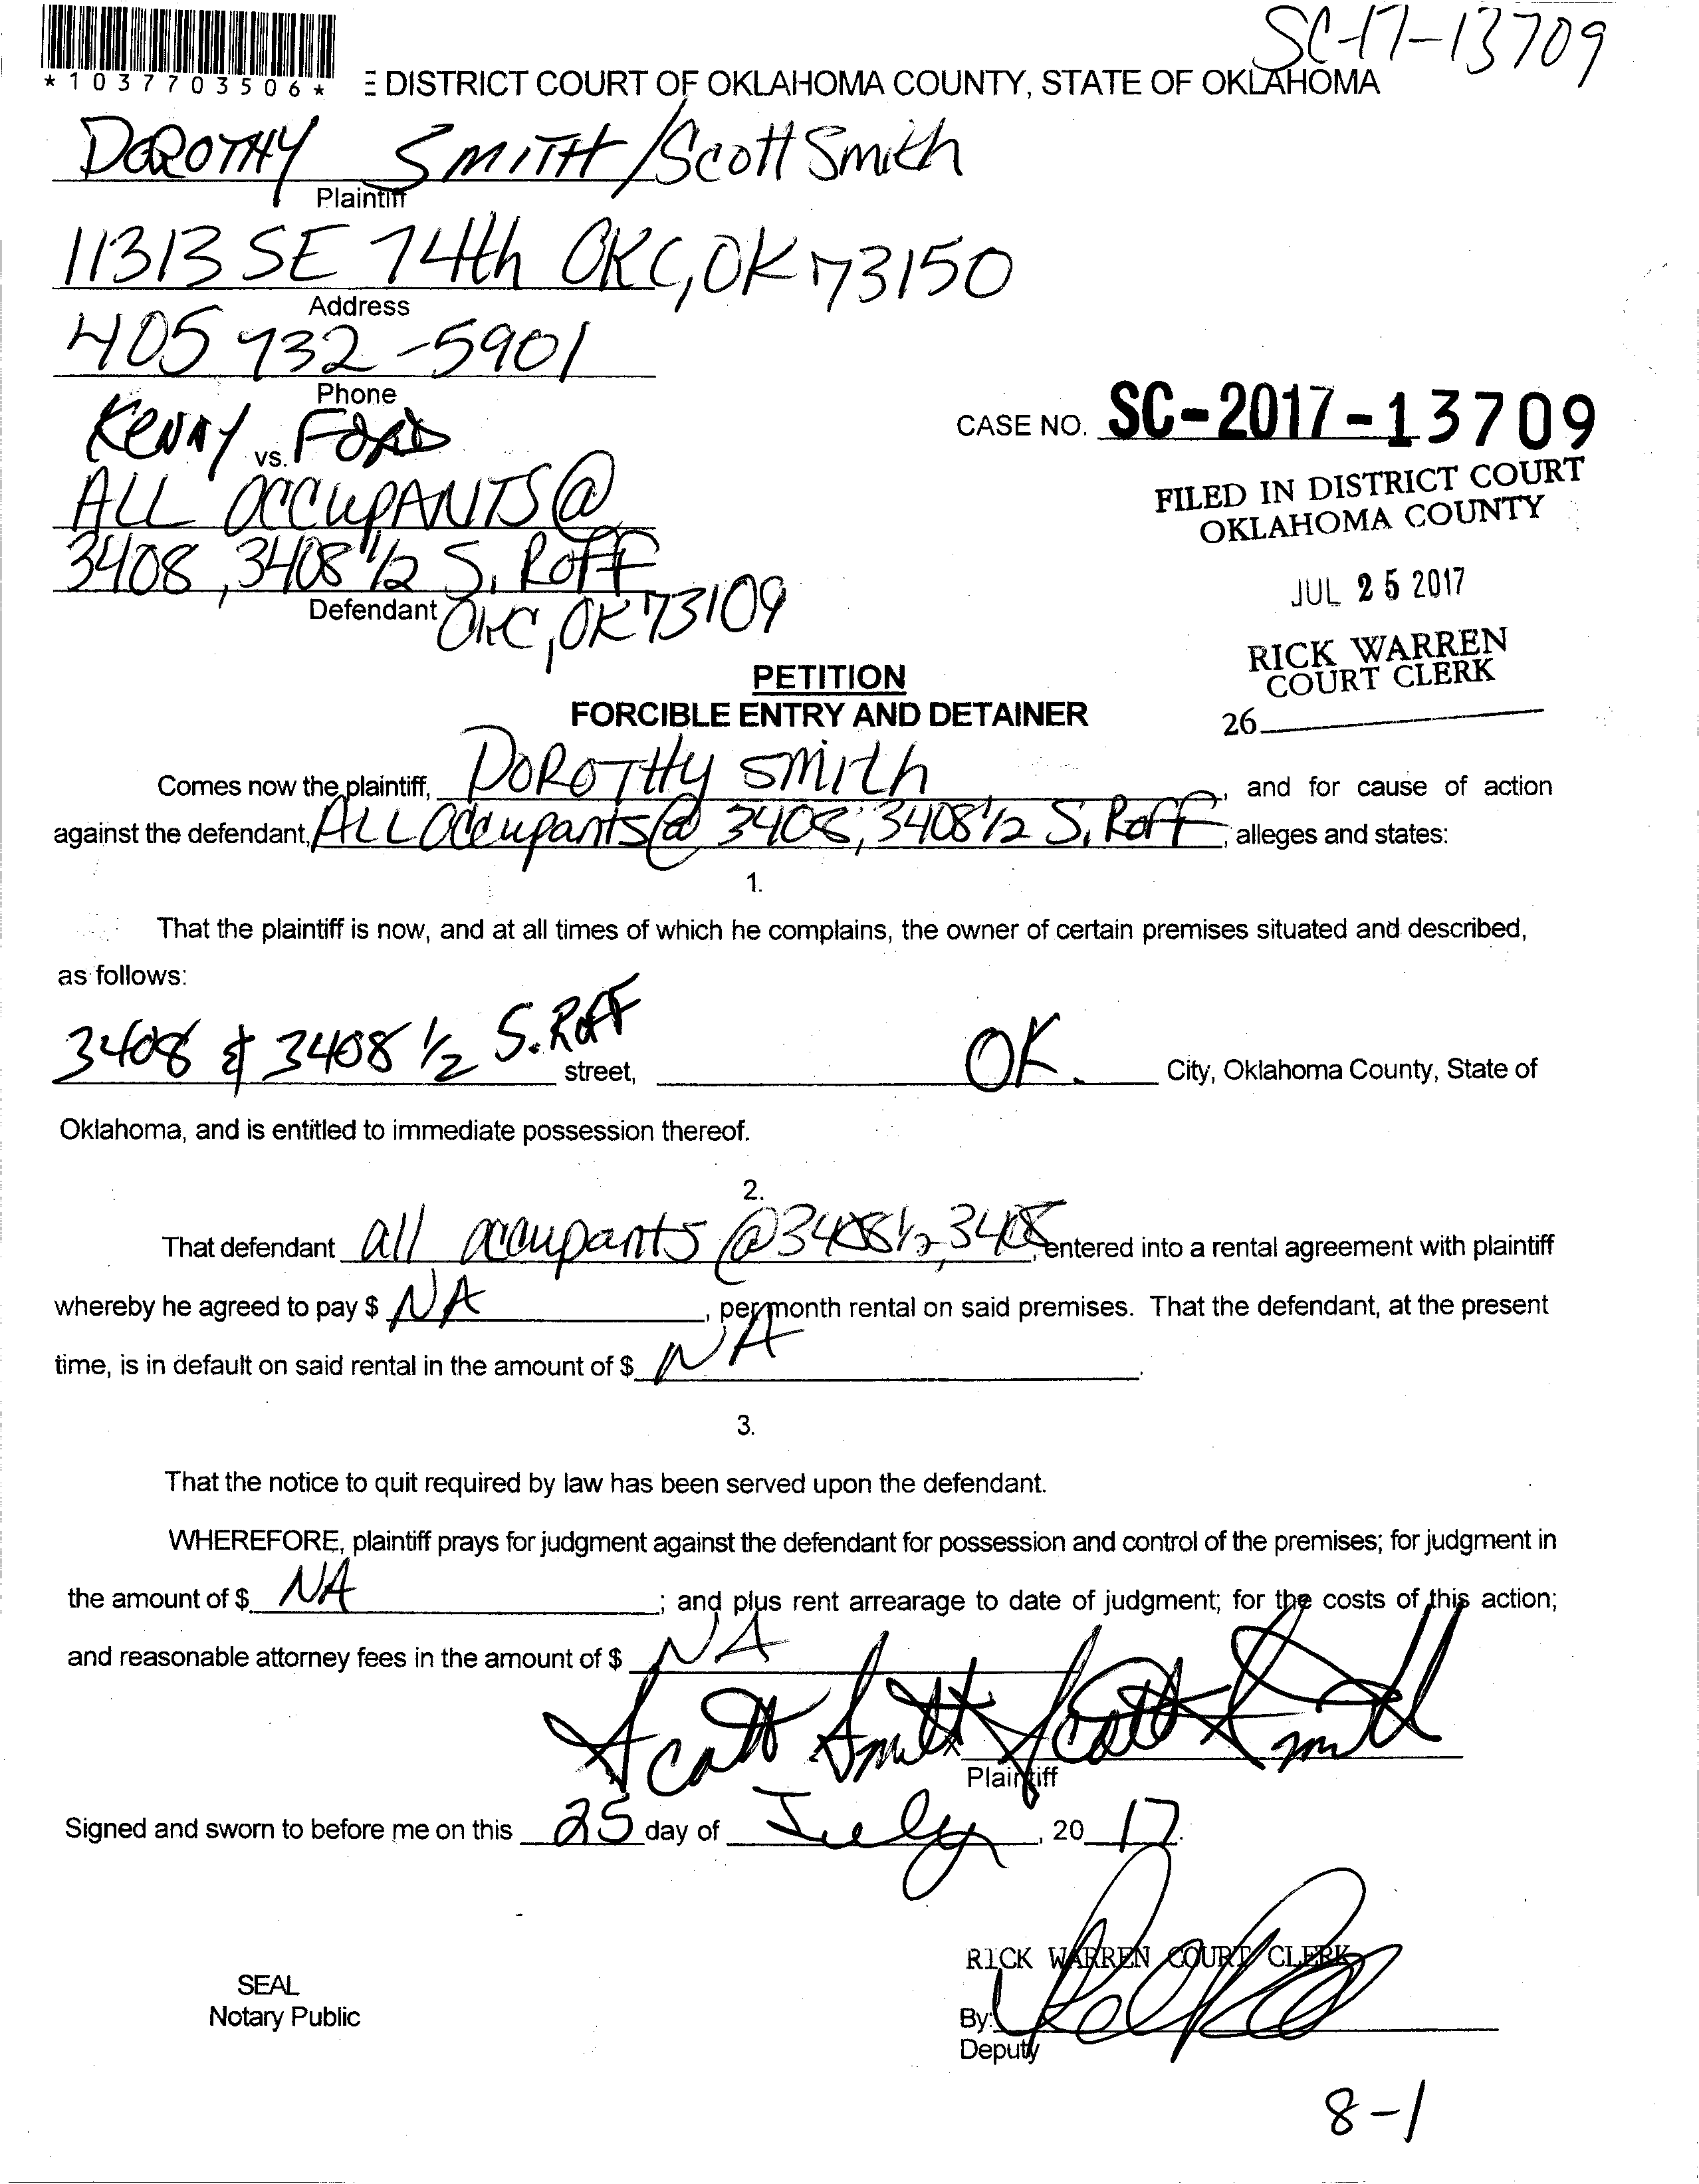 SC-17-13709
*1037703506*
E DISTRICT COURT OF OKLAHOMA COUNTY, STATE OF OKLAHOMA
DOROTHY SMITH/Scott Smith
Plaintiff
11313 SE 74th OKC, OK 73150
Address
405 732-5901
Phone
KENNY FORD
vs.
CASE NO. SC-2017-13709
ALL OCCUPANTS @
3408, 3408 1/2 S. Roff
Defendant OKC, OK 73109
FILED IN DISTRICT COURT
OKLAHOMA COUNTY
JUL 25 2017
RICK WARREN
COURT CLERK
26
PETITION
FORCIBLE ENTRY AND DETAINER
Comes now the plaintiff, DOROTHY Smith, and for cause of action
against the defendant, ALL Occupants @ 3408, 3408 1/2 S. Roff, alleges and states:
1.
That the plaintiff is now, and at all times of which he complains, the owner of certain premises situated and described,
as follows:
3408 & 3408 1/2 S. Roff street, OK. City, Oklahoma County, State of
Oklahoma, and is entitled to immediate possession thereof.
2.
That defendant all occupants @ 3408 1/2, 3408, entered into a rental agreement with plaintiff
whereby he agreed to pay $ NA, per month rental on said premises. That the defendant, at the present
time, is in default on said rental in the amount of $ NA.
3.
That the notice to quit required by law has been served upon the defendant.
WHEREFORE, plaintiff prays for judgment against the defendant for possession and control of the premises; for judgment in
the amount of $ NA; and plus rent arrearage to date of judgment; for the costs of this action;
and reasonable attorney fees in the amount of $ NA
Scott Smith Scott Smith
Plaintiff
Signed and sworn to before me on this 25 day of July, 2017.
RICK WARREN COURT CLERK
SEAL
Notary Public
By:
Deputy
8-1